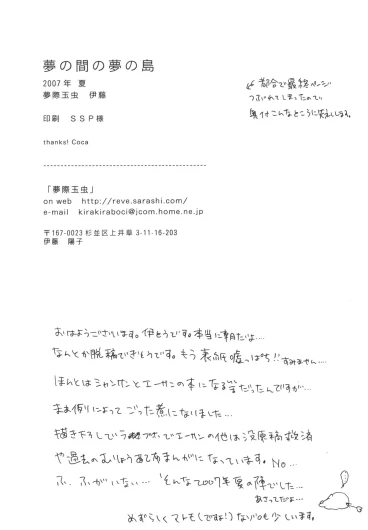 夢の間の夢の島
2007年 夏
夢際玉虫 伊藤
印刷 SSP様
thanks! Coca
「夢際玉虫」
on web http://reve.sarashi.com/
e-mail kirakiraboci@jcom.home.ne.jp
〒167-0023 杉並区上井草 3-11-16-203
伊藤 陽子
都合で最終ページ
つぶれてしまったので、
奥付こんなところに失礼します。
おはようございます。伊とうです。本当に朝だよ…
なんとか脱稿できそうです。もう表紙嘘っぱち!! すみません…
ほんとはシャンサンとエーサンの本になる筈だったんですが…
まあ例によってごった煮になりました…
描き下ろしで エーサンの他は没原稿救済
や過去のむりょうあて布まんがになっています。No…
ふ、ふがいない… そんな2007年夏の陣でした…
あさってだよ…
めずらしくマトモ(ですよ!)な も少しいます。